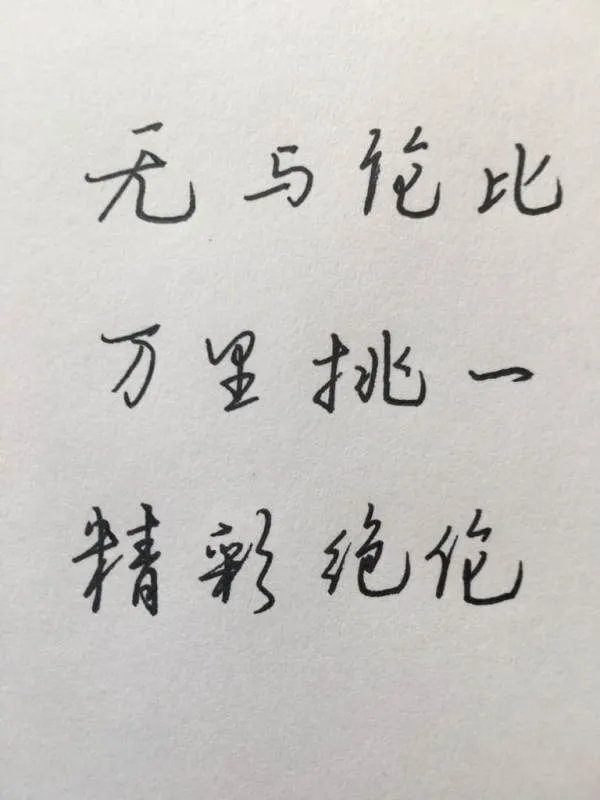 无与伦比
万里挑一
精彩绝伦